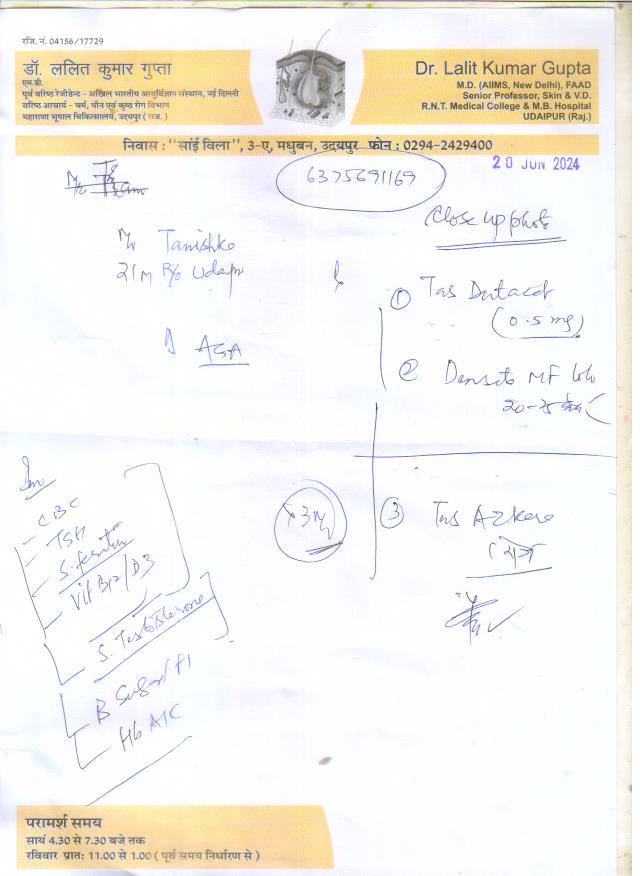 रजि. नं. 04156/17729
डॉ. ललित कुमार गुप्ता
एम.डी.
पूर्व वरिष्ठ रेजीडेन्ट - अखिल भारतीय आयुर्विज्ञान संस्थान, नई दिल्ली
वरिष्ठ आचार्य - चर्म, यौन एवं कुष्ठ रोग विभाग
महाराणा भूपाल चिकित्सालय, उदयपुर ( राज. )
Dr. Lalit Kumar Gupta
M.D. (AIIMS, New Delhi), FAAD
Senior Professor, Skin & V.D.
R.N.T. Medical College & M.B. Hospital
UDAIPUR (Raj.)
निवास : "सांई विला", 3-ए, मधुबन, उदयपुर फोन : 0294-2429400
20 JUN 2024
6375691169
Close up photo
Mr Tanishko
21 M R/o Udaipur
AGA
① Tab Dutacot
(0.5 mg)
② MF
20-25
CBC
TSH
S. ferritin
Vit B12/D3
S. Testosterone
B Sugar
Hb A1C
③ Tab
परामर्श समय
सायं 4.30 से 7.30 बजे तक
रविवार प्रात: 11.00 से 1.00 ( पूर्व समय निर्धारण से )